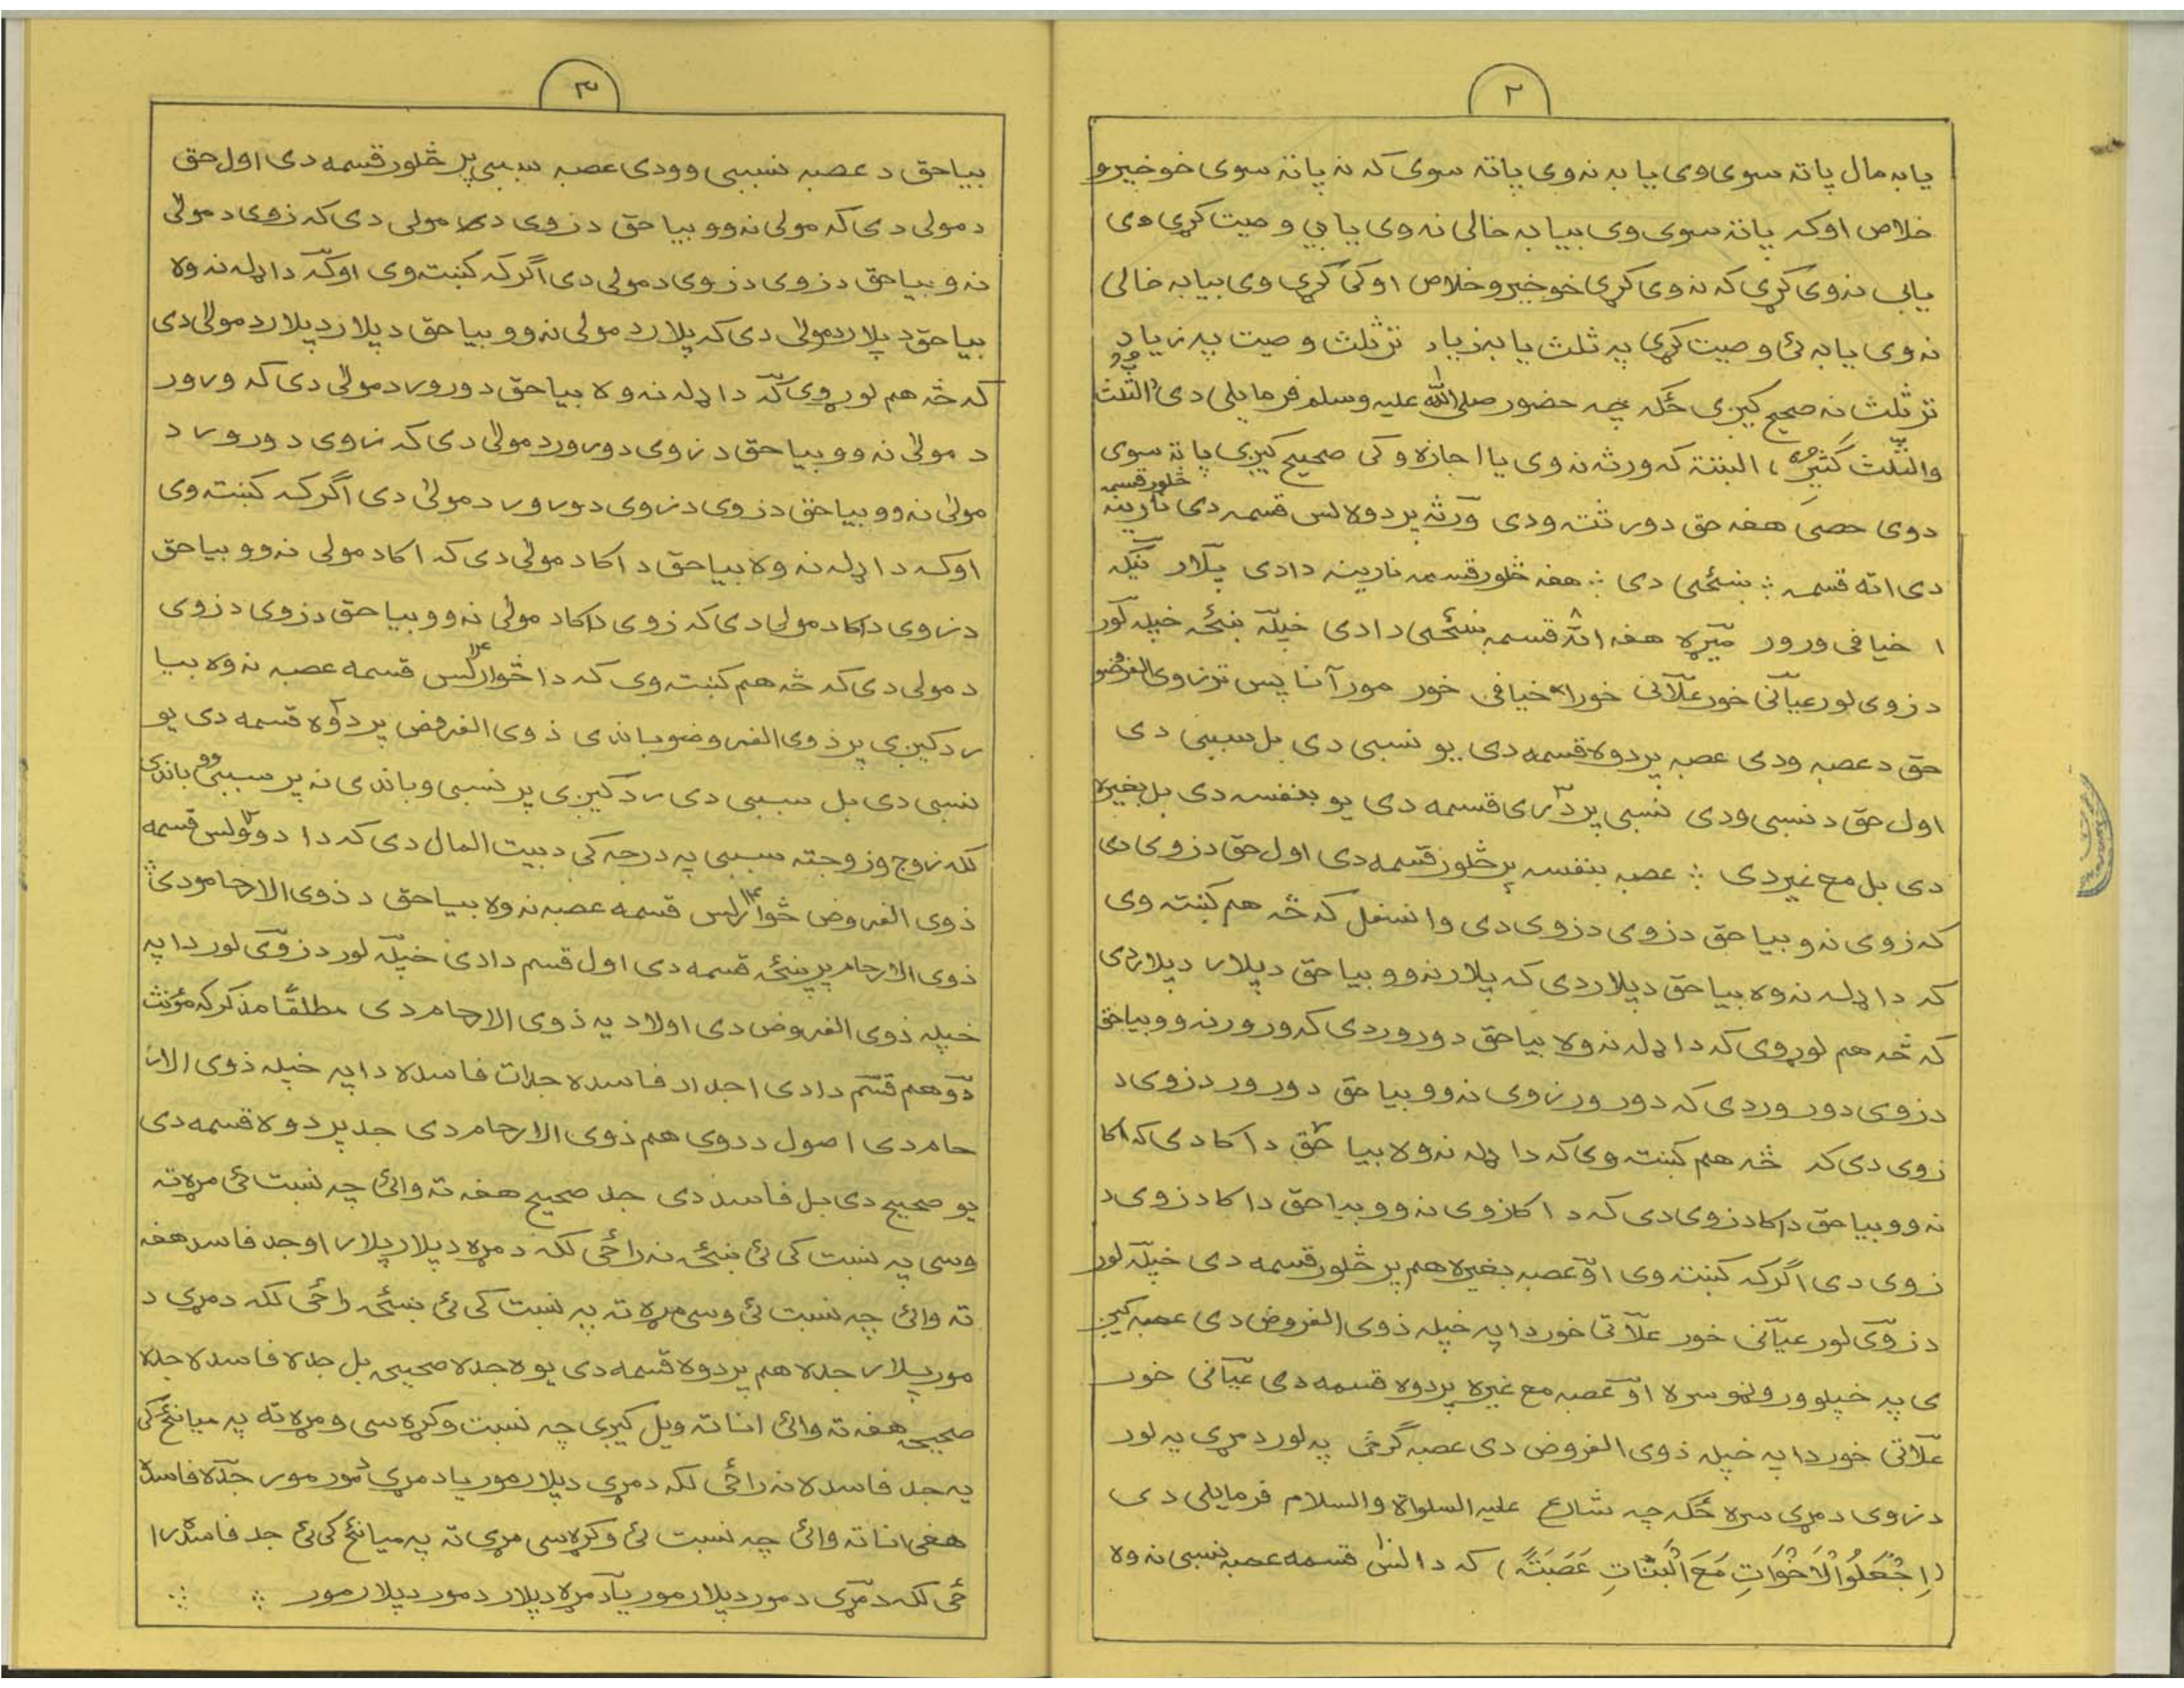 ۲
یا به مال پاته سوی وی یا به نه وی پاته سوی که نه پاته سوی خو خیر و
خلاص او که پاته سوی وی بیا به خالی نه وی یا یې وصیت کړی وی
یا یې نه وی کړی که نه وی کړی خو خیر و خلاص او کئ کړی وی بیا به خالی
نه وی یا به ئی وصیت کړی په ثلث یا به زیاد تر ثلث وصیت په زیاد
تر ثلث نه صحیح کیږی ځکه چه حضور صلی الله علیه وسلم فرمایلی دی الثلث
والثلث کثیر، البتته که ورثه نه وی یا اجازه و کی صحیح کیږی پاته سوی
دوی حصی هغه حق دورثته ودی ورثه پر دوه لس قسمه دی څلور قسمه نارینه
دی اته قسمه ښځی دی هغه څلور قسمه نارینه دادی پلار نیکه
اخیافی ورور میړه هغه اته قسمه ښځی دادی خپله ښځه خپله لور
د زوی لور عیانی خور علاتی خور اخیافی خور مور آنا پس تر زوی الفروضو
حق د عصبه ودی عصبه پر دوه قسمه دی یو نسبی دی بل سببی دی
اول حق د نسبی ودی نسبی پر دری قسمه دی یو بنفسه دی بل بغیره
دی بل مع غیر دی عصبه بنفسه پر څلور قسمه دی اول حق د زوی دی
که زوی نه و بیا حق د زوی د زوی دی وانسفل که څه هم کښته وی
که دا ډله نه وه بیا حق د پلار دی که پلار نه وو بیا حق د پلار د پلار دی
که څه هم لوړ وی که دا ډله نه وه بیا حق د ورور دی که ورور نه وو بیا حق
د زوی د ورور دی که د ورور زوی نه وو بیا حق د ورور د زوی د
زوی دی که څه هم کښته وی که دا ډله نه وه بیا حق د اکا دی که اکا
نه وو بیا حق د اکا د زوی دی که د اکا زوی نه وو بیا حق د اکا د زوی د
زوی دی اگر که کښته وی او عصبه بغیره هم پر څلور قسمه دی خپله لور
د زوی لور عیانی خور علاتی خور دا په خپله ذوی الفروض دی عصبه کیږ
ی په خپلو وروڼو سره او عصبه مع غیره پر دوه قسمه دی عیانی خور
علاتی خور دا په خپله ذوی الفروض دی عصبه گرځی په لور د مړی په لور
د زوی د مړی سره ځکه چه شارع علیه السلواة والسلام فرمایلی دی
(اِجْعَلُوا الْاَخْوَاتِ مَعَ الْبَنَاتِ عَصَبَتً) که دا لس قسمه عصبه نسبی نه وه
۳
بیا حق د عصبه نسببی وودی عصبه سببی پر څلور قسمه دی اول حق
د مولی دی که مولی نه وو بیا حق د زوی د مولی دی که زوی د مولی
نه و بیا حق د زوی د زوی د مولی دی اگر که کښته وی او که دا ډله نه وه
بیا حق د پلار د مولی دی که پلار د مولی نه وو بیا حق د پلار د پلار د مولی دی
که څه هم لوړ وی که دا ډله نه وه بیا حق د ورور د مولی دی که ورور
د مولی نه وو بیا حق د زوی د ورور د مولی دی که زوی د ورور د
مولی نه وو بیا حق د زوی د زوی د ورور د مولی دی اگر که کښته وی
او که دا ډله نه وه بیا حق د اکا د مولی دی که اکا د مولی نه وو بیا حق
د زوی د اکا د مولی دی که زوی د اکا د مولی نه وو بیا حق د زوی د زوی
د مولی دی که څه هم کښته وی که دا څوارلس قسمه عصبه نه وه بیا
رد کیږی پر ذوی الفروضو باندی ذوی الفروض پر دوه قسمه دی یو
نسبی دی بل سببی دی رد کیږی پر نسبی و باندی نه پر سببی وو باندی
لکه زوج و زوجته سببی په درجه کی د بیت المال دی که دا دوولس قسمه
ذوی الفروض څوارلس قسمه عصبه نه وه بیا حق د ذوی الارحامو دی
ذوی الارحام پر پنځه قسمه دی اول قسم دادی خپله لور د زوی لور دا په
خپله ذوی الفروض دی اولاد یه ذوی الارحام دی مطلقاً مذکر که مؤنث
دوهم قسم دادی اجداد فاسده جدات فاسده دا په خپله ذوی الار
حام دی اصول د دوی هم ذوی الارحام دی جد پر دوه قسمه دی
یو صحیح دی بل فاسد دی جد صحیح هغه ته وائی چه نسبت ئی مړه ته
وسی په نسبت کی ئی ښځی نه راځی لکه د مړه د پلار پلار او جد فاسد هغه
ته وائی چه نسبت ئی وسی مړه ته په نسبت کی ئی ښځی راځی لکه د مړی د
مور پلار جده هم پر دوه قسمه دی یوه جده صحیحی بل جده فاسده جده
صحیحه هغه ته وائی انا ته ویل کیږی چه نسبت و کړه سی و مړه ته په میانځ کی
یه جد فاسده نه راځی لکه د مړی د پلار مور یا د مړی د مور مور جده فاسده
هغی انا ته وائی چه نسبت ئی و کړه سی مړی ته په میانځ کی ئی جد فاسد را
ځی لکه د مړی د مور د پلار مور یا د مړه د پلار د مور د پلار مور